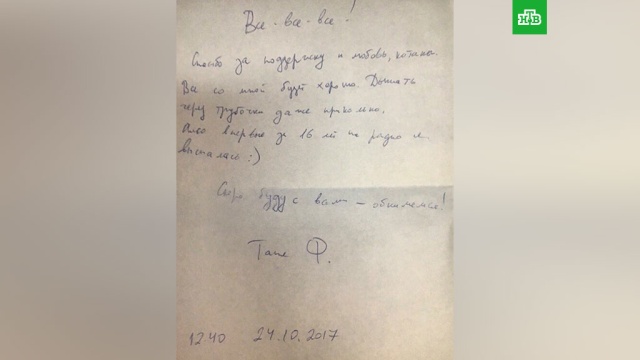 НТВ
Все-все-все!
Спасибо за поддержку и любовь, котаны.
Все со мной будет хорошо. Дышать
через трубочки даже прикольно.
впервые за 16 лет на радио я
выспалась :)
Скоро буду с вами – обнимемся!
Таня Ф.
1240 24.10.2017